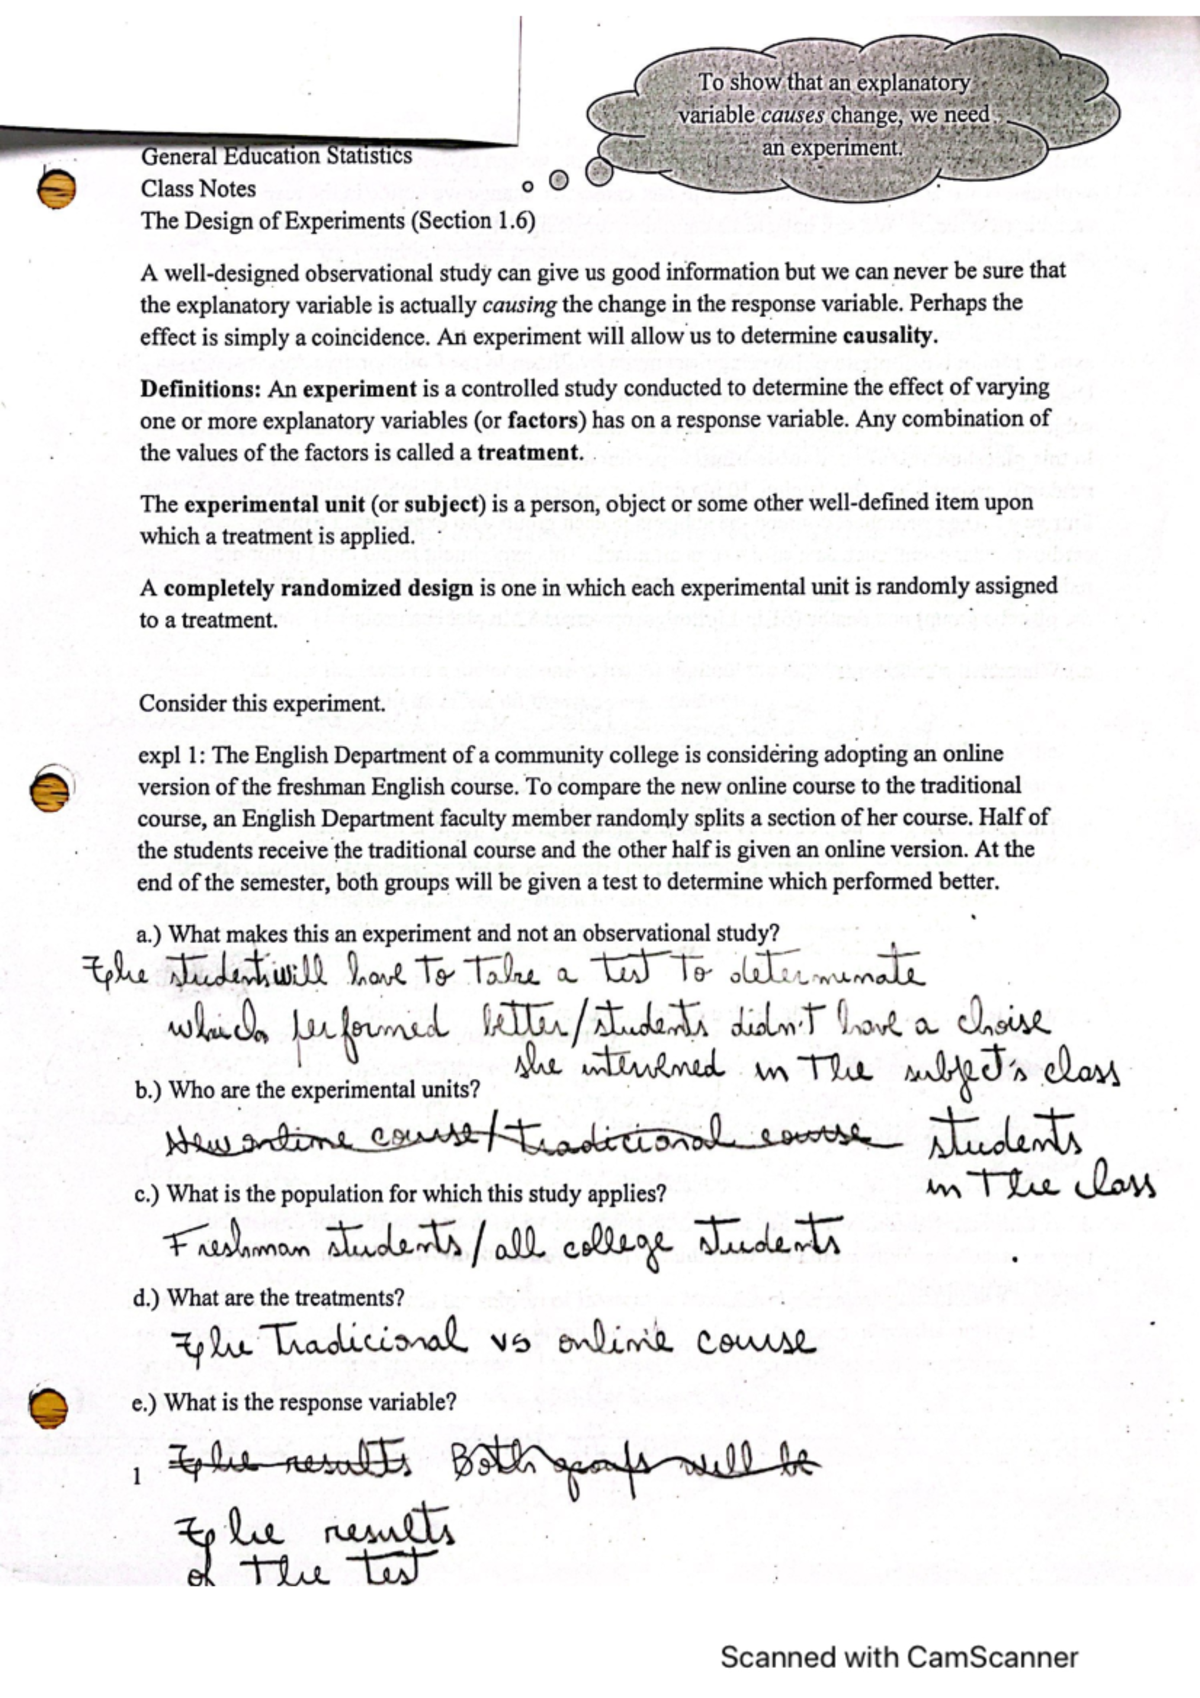 To show that an explanatory
variable causes change, we need
an experiment.
General Education Statistics
Class Notes
The Design of Experiments (Section 1.6)
A well-designed observational study can give us good information but we can never be sure that
the explanatory variable is actually causing the change in the response variable. Perhaps the
effect is simply a coincidence. An experiment will allow us to determine causality.
Definitions: An experiment is a controlled study conducted to determine the effect of varying
one or more explanatory variables (or factors) has on a response variable. Any combination of
the values of the factors is called a treatment.
The experimental unit (or subject) is a person, object or some other well-defined item upon
which a treatment is applied.
A completely randomized design is one in which each experimental unit is randomly assigned
to a treatment.
Consider this experiment.
expl 1: The English Department of a community college is considering adopting an online
version of the freshman English course. To compare the new online course to the traditional
course, an English Department faculty member randomly splits a section of her course. Half of
the students receive the traditional course and the other half is given an online version. At the
end of the semester, both groups will be given a test to determine which performed better.
a.) What makes this an experiment and not an observational study?
The students will have to take a test to determinate
which performed better/students didn't have a choise
she intervened in the subject's class
b.) Who are the experimental units?
New online course/tradicional course students
in the class
c.) What is the population for which this study applies?
Freshman students/all college students
d.) What are the treatments?
The Tradicional vs online course
e.) What is the response variable?
The results Both groups will be
1
The results
of the test
Scanned with CamScanner